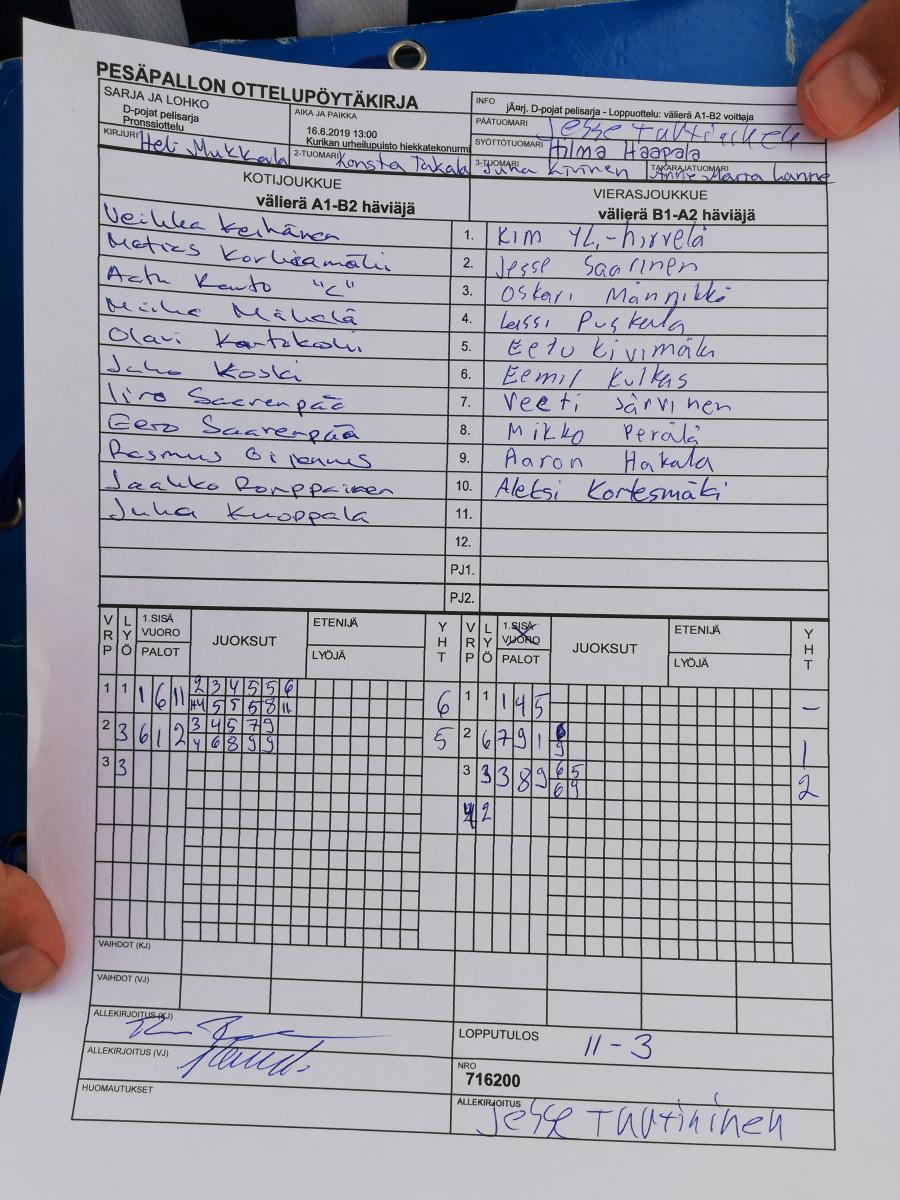 PESÄPALLON OTTELUPÖYTÄKIRJA
SARJA JA LOHKO
D-pojat pelisarja
Pronssiottelu
AIKA JA PAIKKA
16.6.2019 13:00
Kurikan urheilupuisto hiekkatekonurmi
INFO
jÄärj. D-pojat pelisarja - Loppuottelu: välierä A1-B2 voittaja
PÄÄTUOMARI Jesse
SYÖTTÖTUOMARI Hilma Haapala
KIRJURI Heli Mukkala
2-TUOMARI Konsta Takala
3-TUOMARI Juha Kivinen
TAKARAJATUOMARI Anne-Marra Lanne
KOTIJOUKKUE
välierä A1-B2 häviäjä
VIERASJOUKKUE
välierä B1-A2 häviäjä
Veikka Keihänen 1. Kim YL,-hirvelä
Matias Korkiamäki 2. Jesse Saarinen
Kauto "C" 3. Oskari Männikkö
Miika Mäkelä 4. Lassi Puskala
Olavi 5. Eetu Kivimäki
Juho Koski 6. Eemil Kulkas
Iiro Saarenpää 7. Veeti Järvinen
Eero Saarenpää 8. Mikko Perälä
Rasmus 9. Aaron Hakala
Jaakko Romppainen 10. Aleksi Kortesmäki
Juha Kuoppala 11.
12.
PJ1.
PJ2.
VRP LYÖ 1.SISÄ VUORO PALOT JUOKSUT ETENIJÄ LYÖJÄ YHT
VRP LYÖ 1.SISÄ VUORO PALOT JUOKSUT ETENIJÄ LYÖJÄ YHT
1 1 1 6 11 2 3 4 5 5 6 6 1 1 1 4 5 –
5 5 5 8 11
2 3 6 1 2 3 4 5 7 9 5 2 6 7 9 1 1
4 6 8 9 9 9
3 3 3 3 3 8 9 6 5 2
6 9
4 2
VAIHDOT (KJ)
VAIHDOT (VJ)
ALLEKIRJOITUS (KJ)
ALLEKIRJOITUS (VJ)
HUOMAUTUKSET
LOPPUTULOS 11 - 3
NRO
716200
ALLEKIRJOITUS Jesse Tuutininen